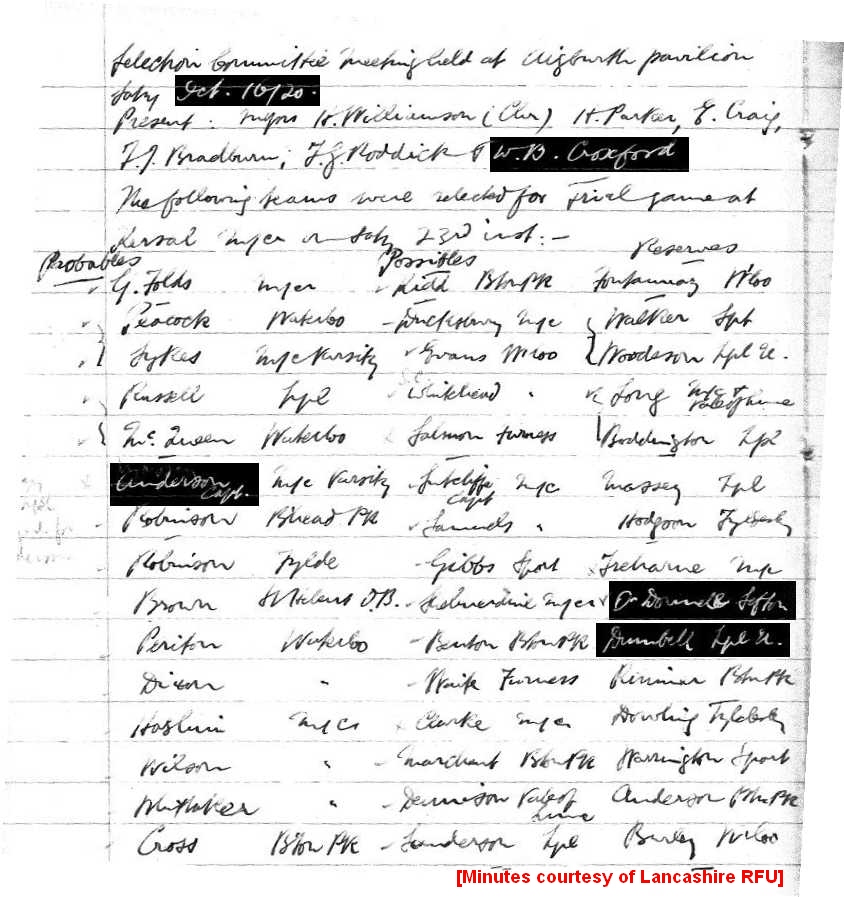 Selection Committee Meeting held at Aigburth pavilion
Saty Oct. 16/20.
Present: Messrs H. Williamson (Chr) H. Parker, E. Craig,
F.J. Bradburn, J.G. Roddick & W.B. Croxford
The following teams were selected for Trial game at
Kersal M/cr on Saty 23rd inst:—
Probables Possibles Reserves
G. Folds M/cr Kidd B'ton Pk W'loo
Peacock Waterloo Ducksbury M/c Walker Spt
Sykes M/c Varsity Evans W'loo Woodson Lpl U.
Russell Lpl Whitehead " Long M/c & Vale of Lune
McQueen Waterloo Salmon Furness Boddington Lpl
Anderson Capt. M/c Varsity Sutcliffe Capt M/c Massey Lpl
Robinson B'head Pk Samuels " Hodgson Tyldesley
Robinson Fylde Gibbs Sport Treharne M/c
Brown St Helens O.B. M/cr O'Donnell Sefton
Periton Waterloo Benton B'ton Pk Dumbell Lpl U.
Dixon " Waite Furness Rimmer B'ton Pk
M/cr Clarke M/cr Dowling Tyldesley
Wilson " Marchant B'ton Pk Warrington Sport
Whittaker " Dennison Vale of Lune Anderson B'ton Pk
Cross B'ton Pk Sanderson Lpl Burley W'loo
[Minutes courtesy of Lancashire RFU]